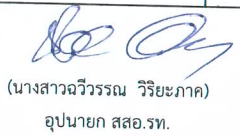 (นางสาวฉวีวรรณ วิริยะภาค)
อุปนายก สสอ.รท.